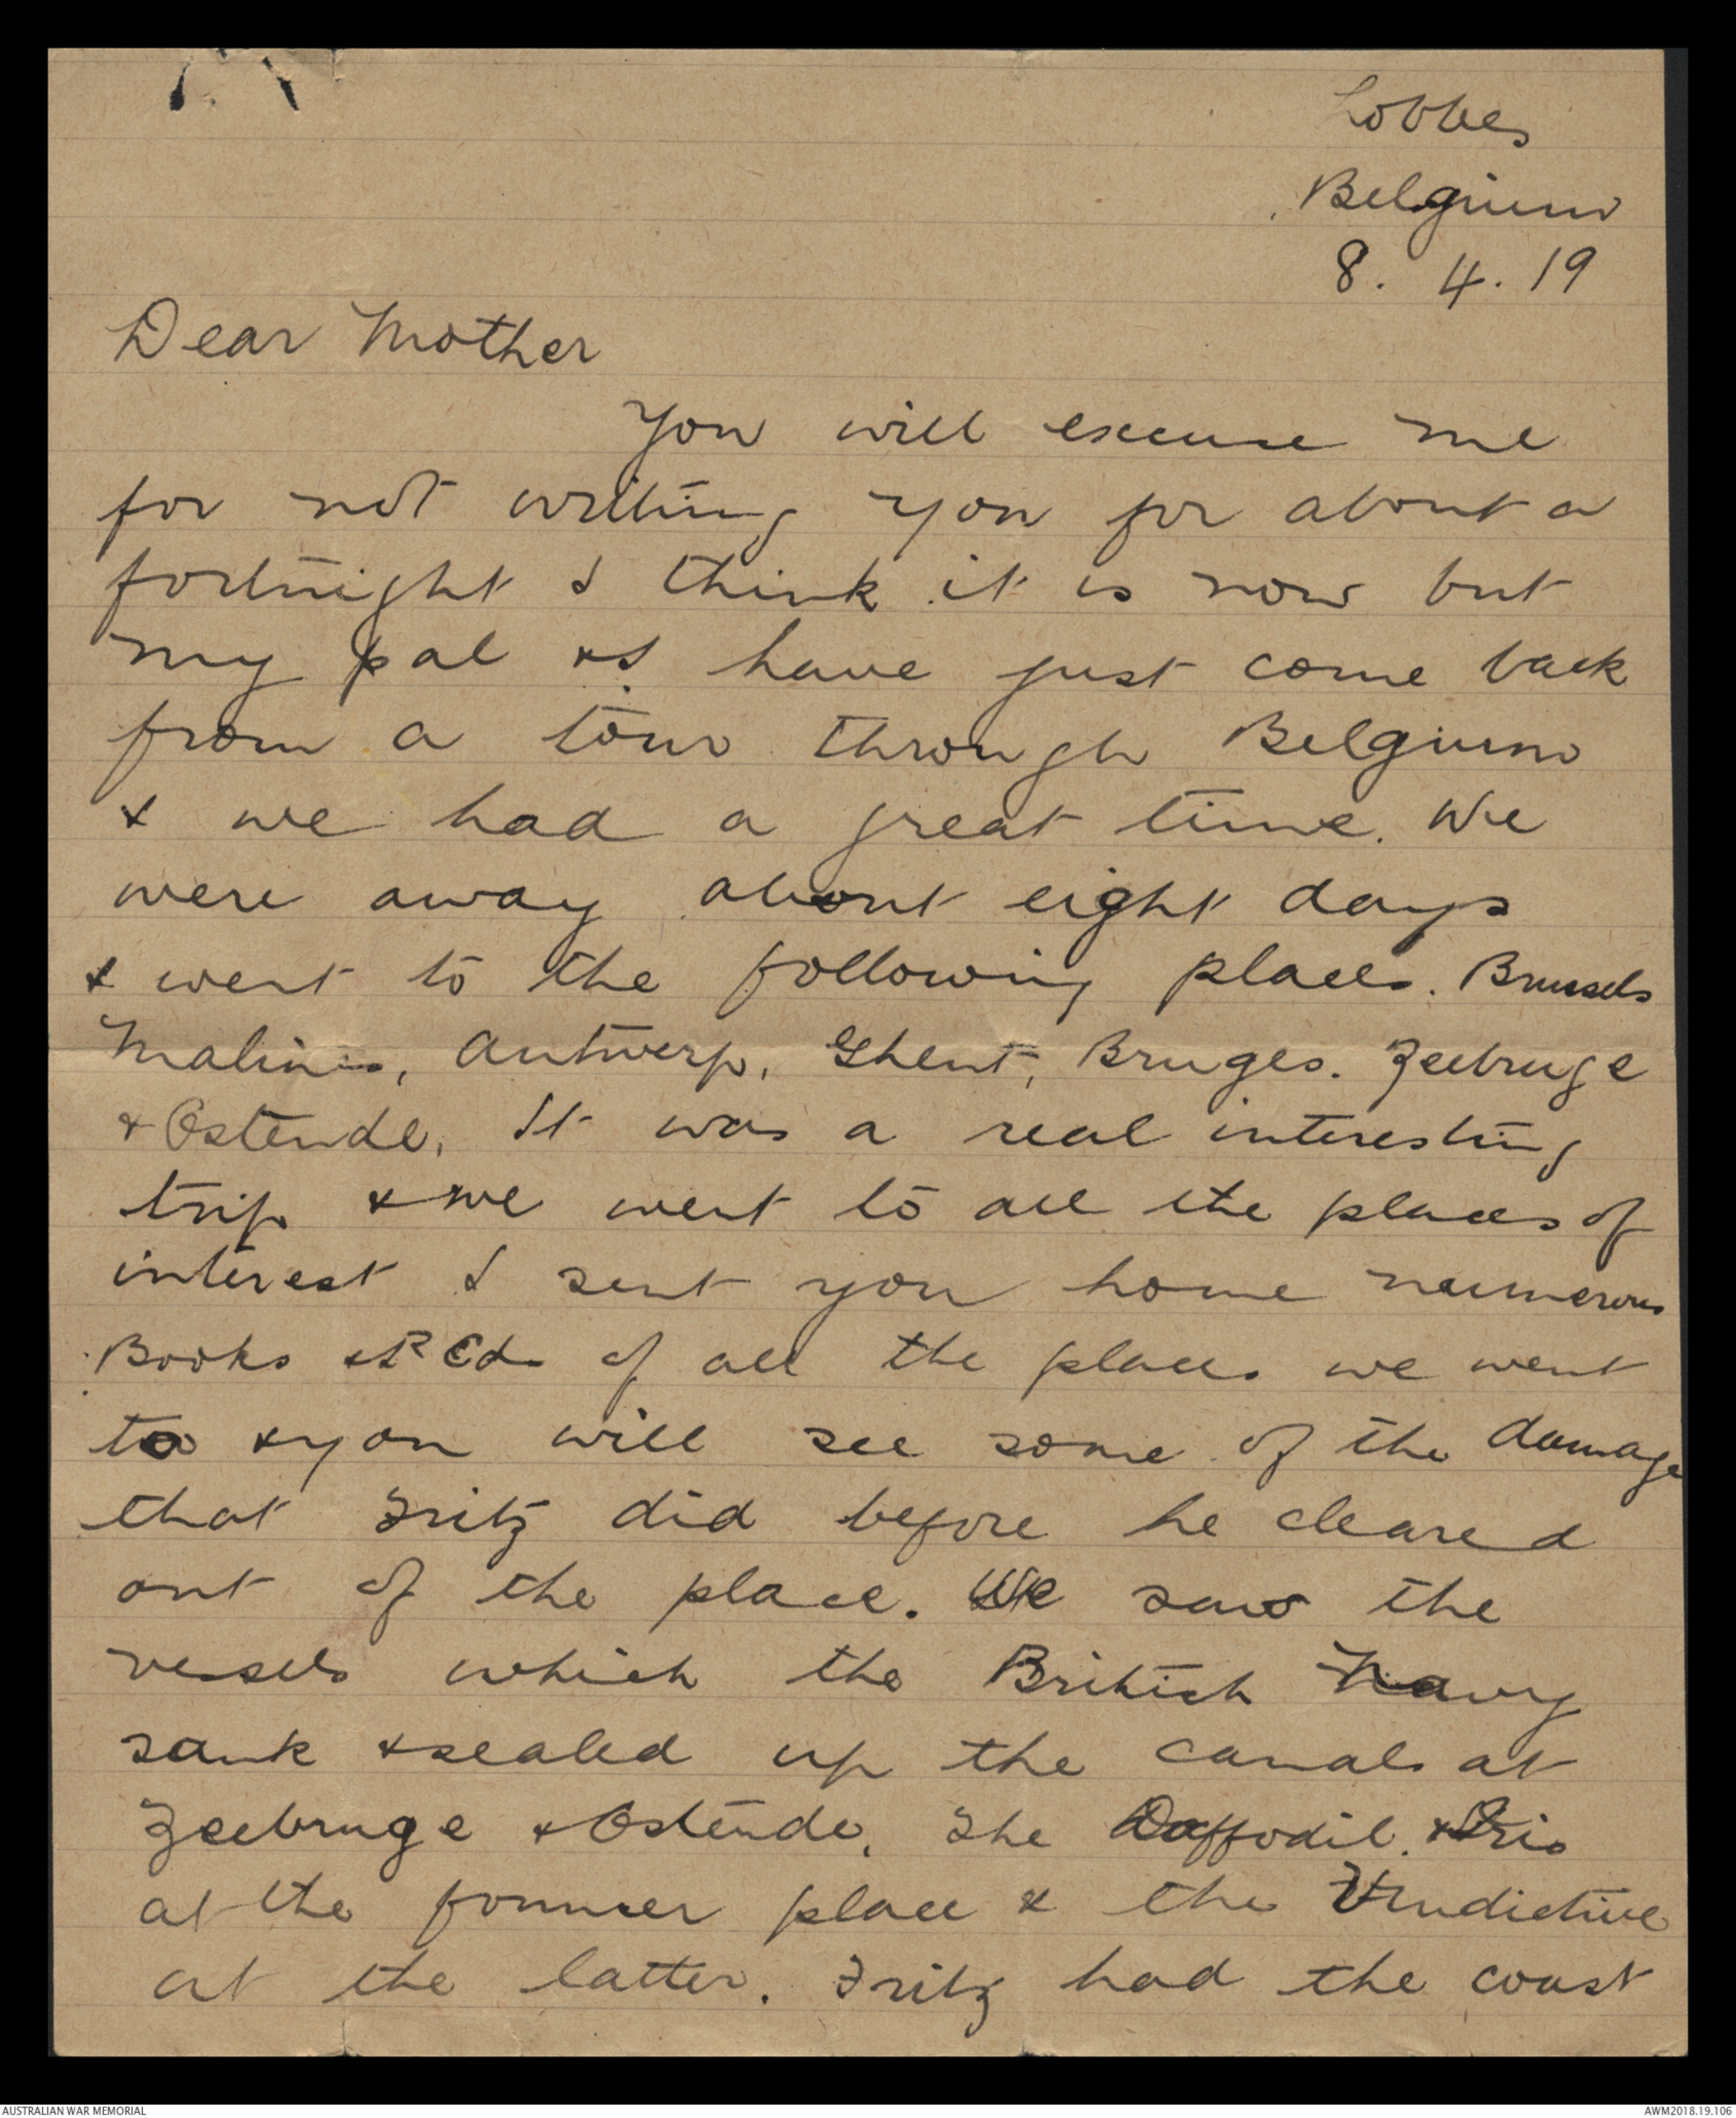 Lobbes
Belgium
8. 4. 19
Dear Mother
You will excuse me
for not writing you for about a
fortnight I think it is now but
my pal & I have just come back
from a tour through Belgium
& we had a great time. We
were away about eight days
& went to the following places. Brussels
Malines, Antwerp, Ghent, Bruges. Zeebruge
& Ostende. It was a real interesting
trip & we went to all the places of
interest I sent you home numerous
Books & P Cds of all the places we went
to & you will see some of the damage
that Fritz did before he cleared
out of the place. We saw the
vessels which the British Navy
sank & sealed up the canals at
Zeebruge & Ostende. The Daffodil. & Iris
at the former place & the Vindictive
at the latter. Fritz had the coast
AUSTRALIAN WAR MEMORIAL
AWM2018.19.106